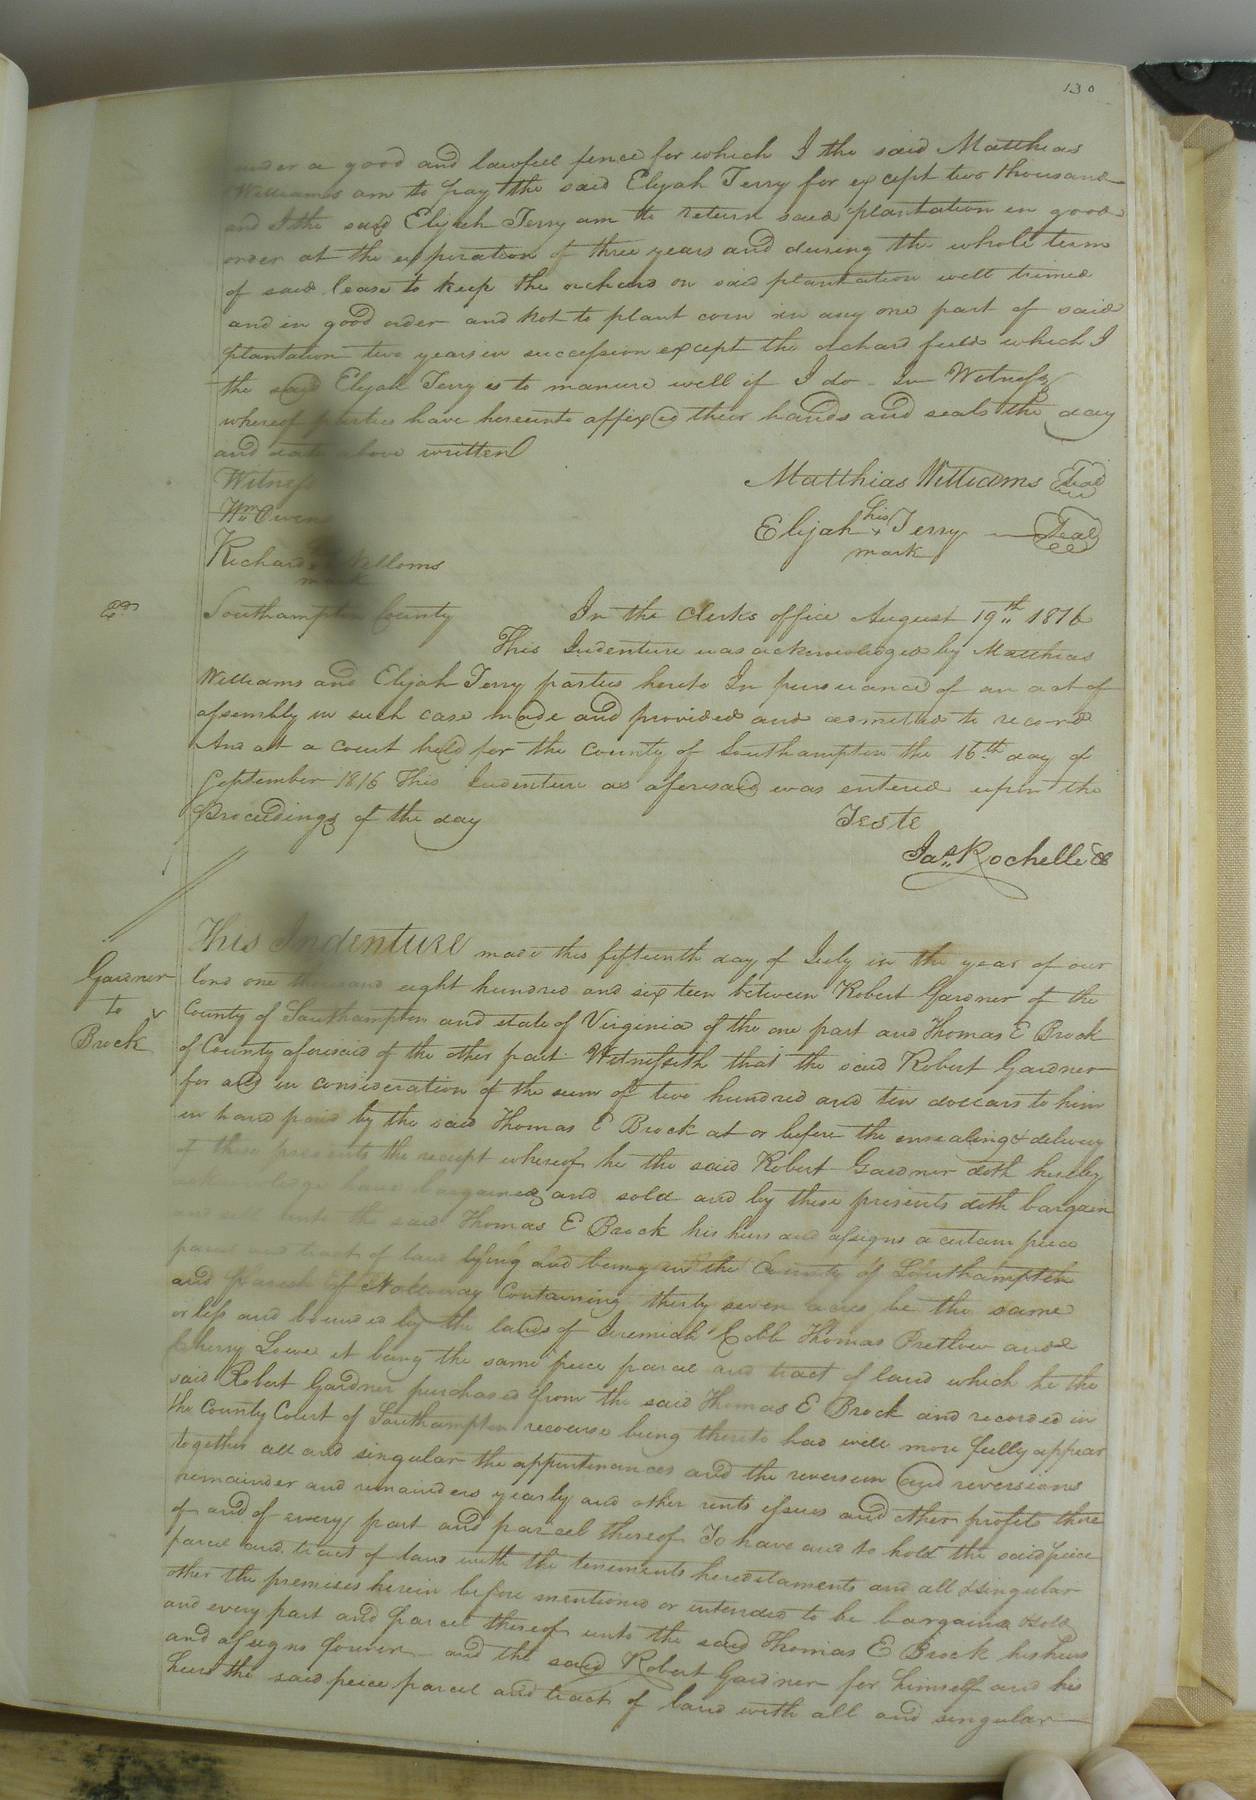 130
under a good and lawfull fence for which I the said Matthias
Williams am to pay the said Elijah Terry for except two thousand
and I the said Elijah Terry am to return said plantation in good
order at the expiration of three years and during the whole term
of said lease to keep the orchard on said plantation well trimed
and in good order and not to plant corn in any one part of said
plantation two years in succession except the orchard field which I
the said Elijah Terry is to manure well if I do - In Witness
whereof parties have hereunto affixed their hands and seals the day
and date above written
Witness
Matthias Williams Seal
Wm Owen
Elijah his x mark Terry Seal
Richard mark
Southampton County In the Clerks office August 19th 1816
This Indenture was acknowledged by Matthias
Williams and Elijah Terry parties hereto In pursuance of an act of
assembly in such case made and provided and admitted to record
And at a court held for the County of Southampton the 16th day of
September 1816 This Indenture as aforesaid was entered upon the
Proceedings of the day
Teste
Jas Rochelle
Gardner
to
Brock
This Indenture made this fifteenth day of July in the year of our
lord one thousand eight hundred and sixteen between Robert Gardner of the
County of Southampton and state of Virginia of the one part and Thomas E Brock
of County aforesaid of the other part Witnesseth that the said Robert Gardner
for and in consideration of the sum of two hundred and ten dollars to him
in hand paid by the said Thomas E Brock at or before the ensealing & delivery
of these presents the receipt whereof he the said Robert Gardner doth hereby
have bargained and sold and by these presents doth bargain
and sell unto the said Thomas E Brock his heirs and assigns a certain piece
parcel and tract of land lying and being in the County of Southampton
and Parish of Nottoway Containing thirty seven acres be the same
or less and bounded by the lands of Jeremiah Cobb Thomas Pretlow and
Cherry Lowe it being the same peice parcel and tract of land which he the
said Robert Gardner purchased from the said Thomas E Brock and recorded in
the County Court of Southampton recourse being thereto had will more fully appear
together all and singular the appurtenances and the reversion and reversions
remainder and remainders yearly and other rents issues and other profits there
of and of every part and parcel thereof To have and to hold the said peice
parcel and tract of land with the tenements hereditaments and all & singular
other the premises herein before mentioned or intended to be bargained & sold
and every part and parcel thereof unto the said Thomas E Brock his heirs
and assigns forever - and the said Robert Gardner for himself and his
heirs the said peice parcel and tract of land with all and singular